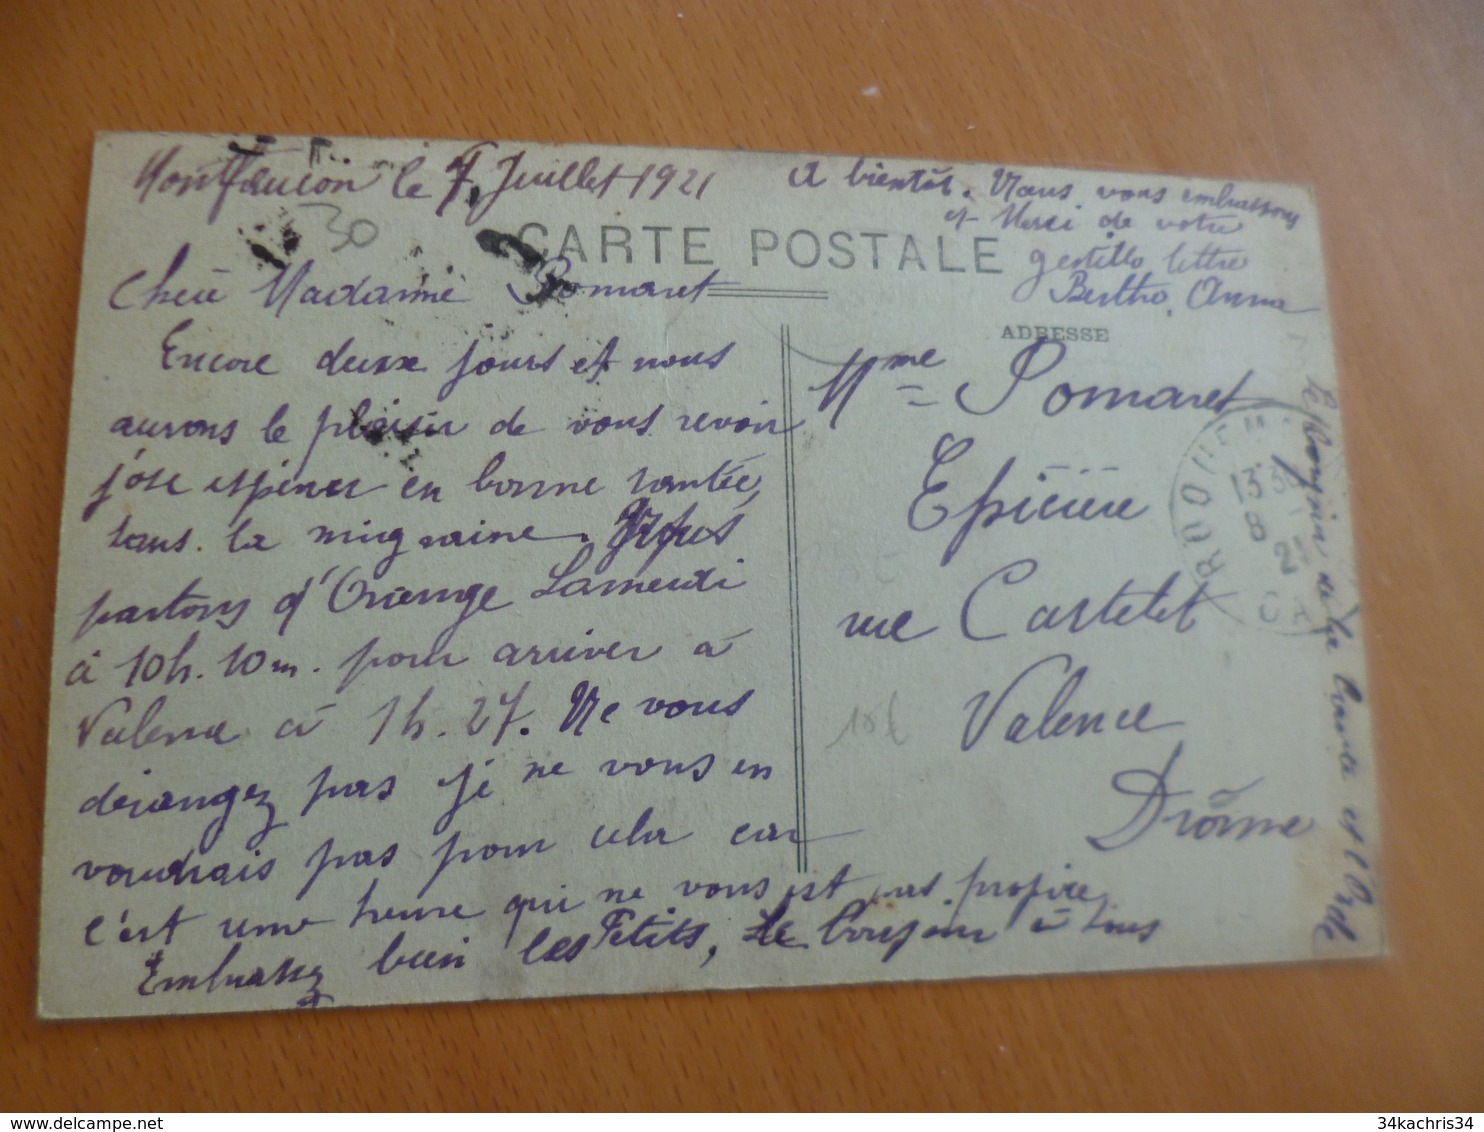 Montfaucon le 7 Juillet 1921
30
CARTE POSTALE
A bientôt. Nous vous embrassons
et Merci de votre
gentille lettre
Berthe, Anna
Chère Madame Pomaret
Encore deux jours et nous
aurons le plaisir de vous revoir
j'ose espérer en bonne santée,
sans la migraine. Nous
partons d'Orange Samedi
à 10h. 10m. pour arriver à
Valence à 1h. 27. Ne vous
dérangez pas je ne vous en
voudrais pas pour cela car
c'est une heure qui ne vous est pas propice,
Embrassez bien les Petits, Le bonjour à tous
ADRESSE
Mme Pomaret
Epicière
rue Castelet
Valence
Drôme
ROQUEM
13 3
8
21
GA
10€
à la et l'
34kachris34